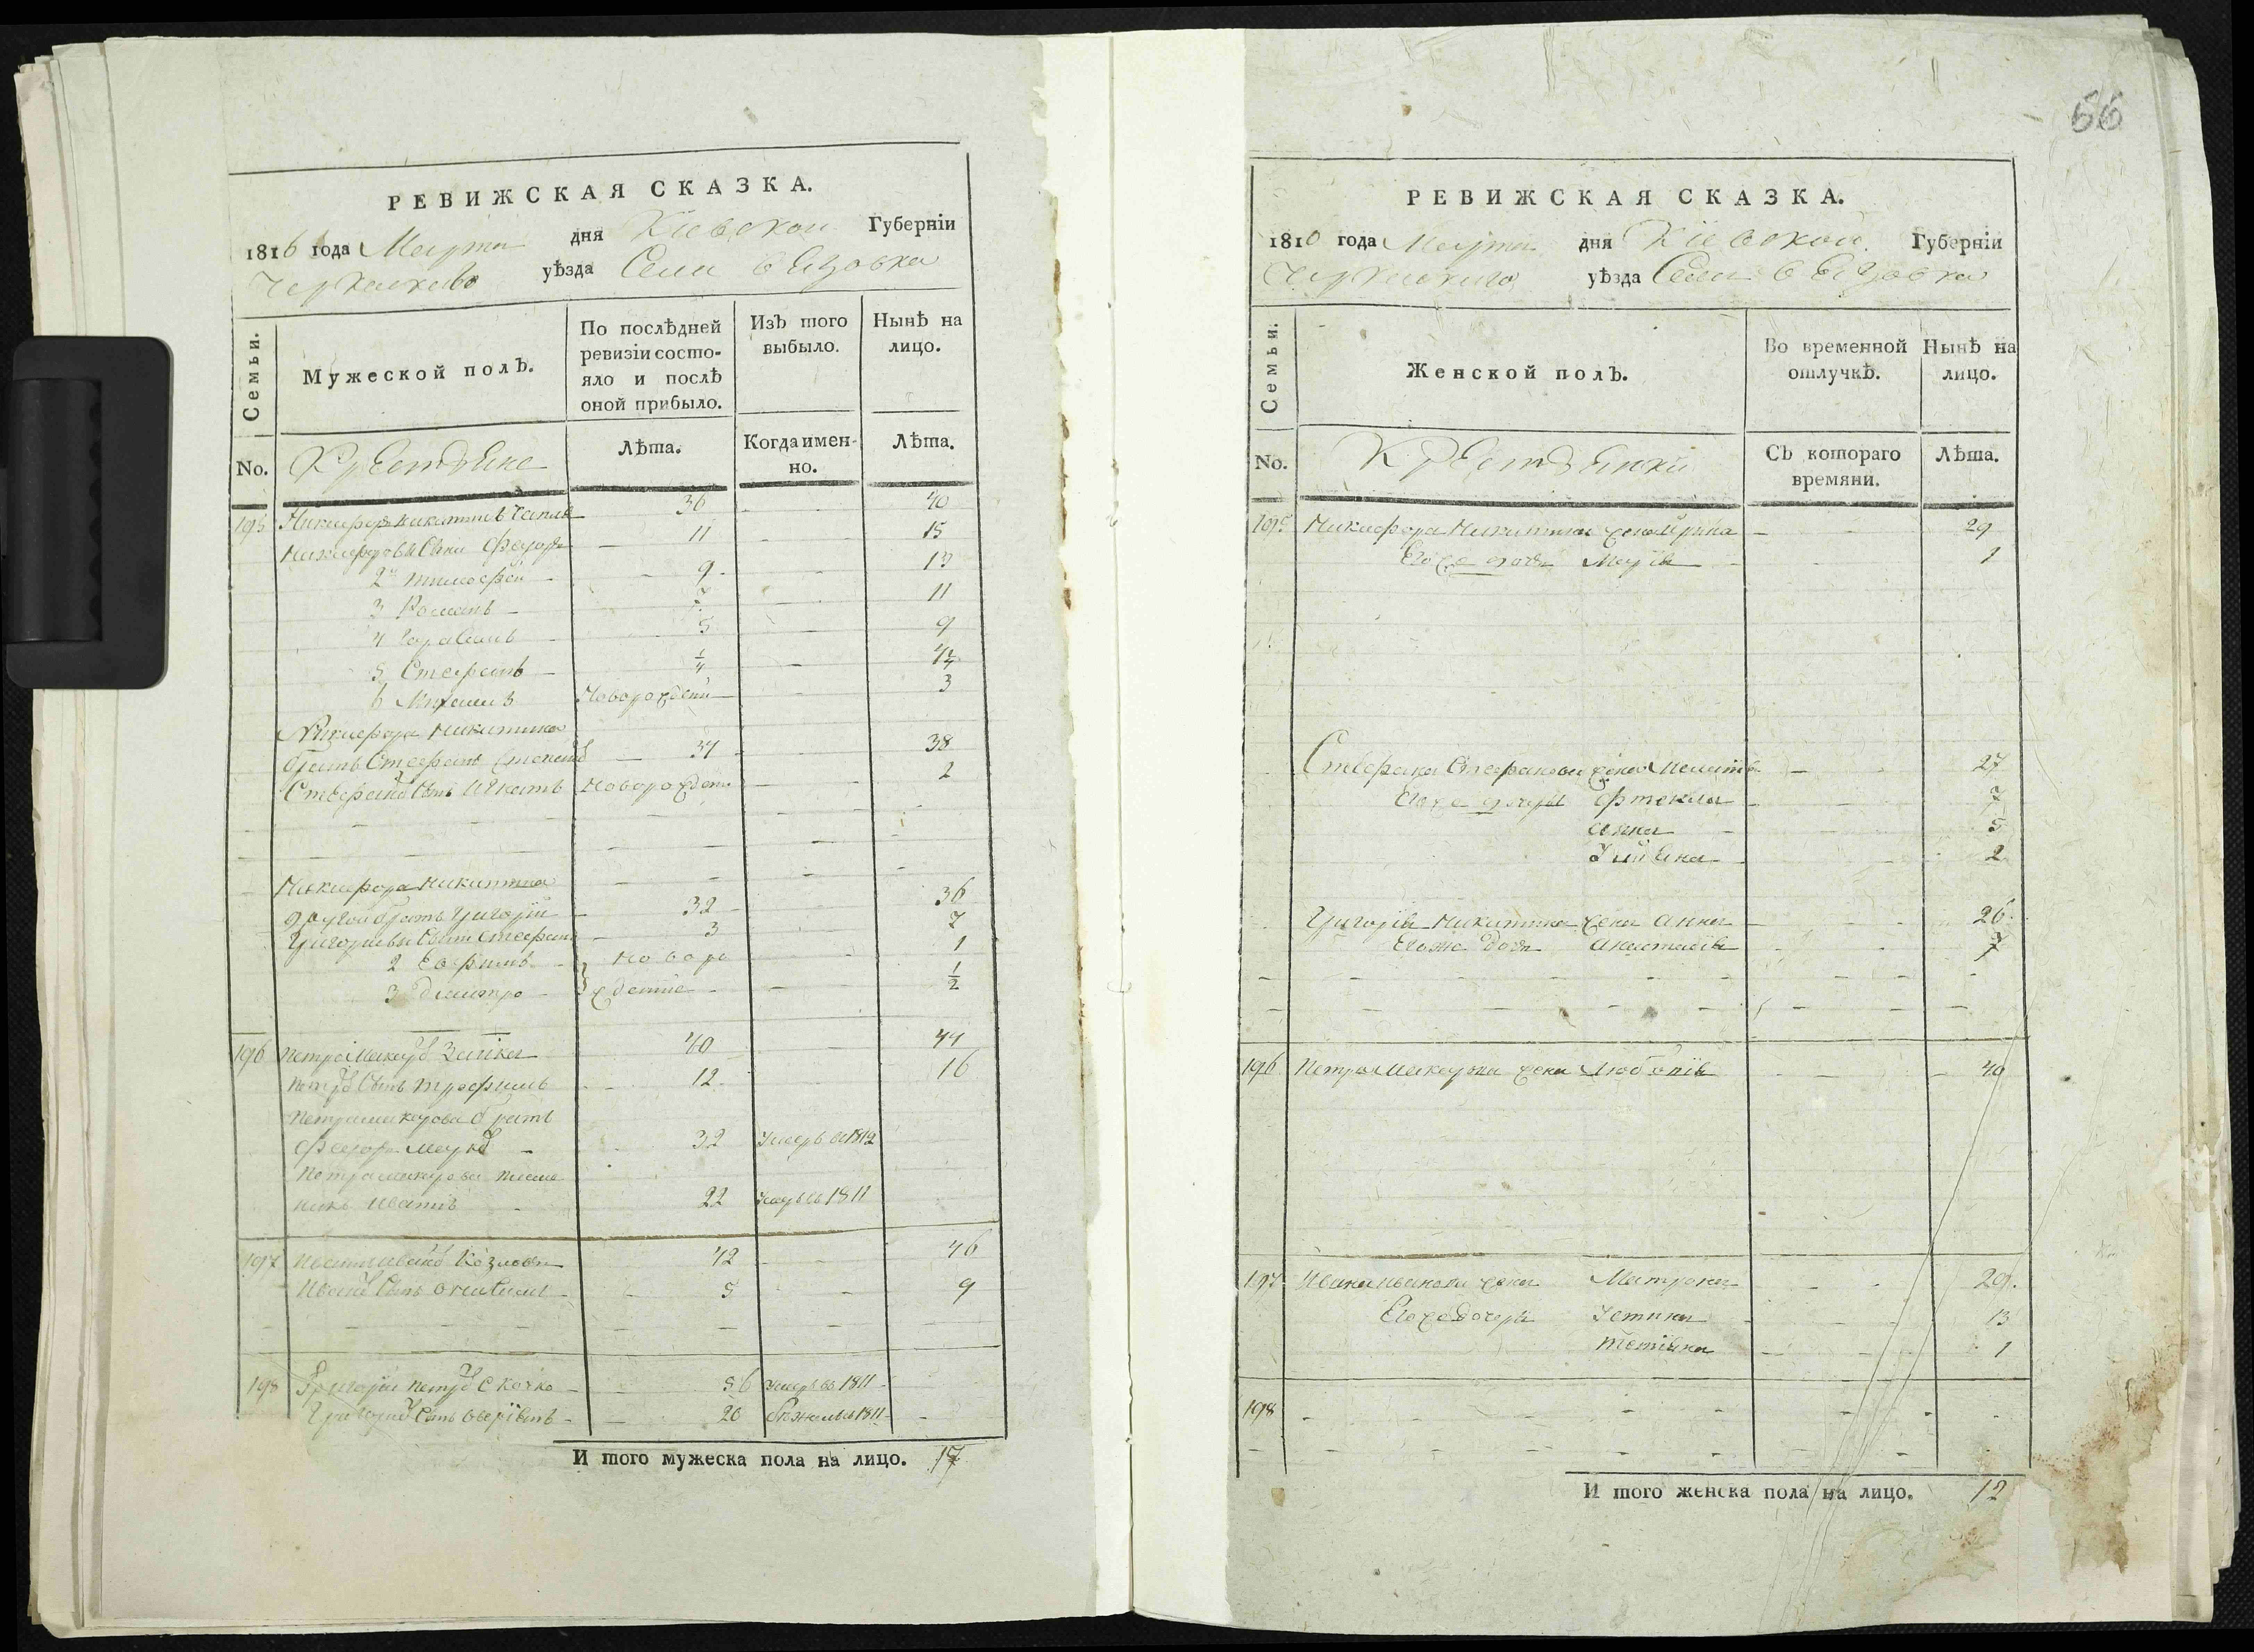 66
РЕВИЖСКАЯ СКАЗКА.
1816 года Марта дня Киевской Губернїи
Черкаскаго уѣзда Села
Семьи. Мужеской полЪ. По послѣдней ревизїи состояло и послѣ оной прибыло. ИзЪ того выбыло. Нынѣ на лицо.
No. Крестьяне Лѣта. Когда именно. Лѣта.
195 Никифоръ Никитинъ 36 - 40
Никифоровы Сыны Федоръ - 11 - 15
2й Тимофей - 9 - 13
3 Романъ - 7 - 11
4 - 5 - 9
5 Стефанъ - 1/4 - 4 1/4
6 Михаилъ Новорожденъ - 3
Никифора Никитина
братъ Стефанъ - 34 - 38
Стефановъ Сынъ Новорожденъ - 2
Никифора Никитина
другой братъ Григорїй - 32 - 36
Григорьевы Сыны Стефанъ - 3 - 7
2 Ефримъ - новоро - 1
3 Дмитро - жденные - 1/2
196 Петро Макаровъ Заика 40 - 44
Петровъ Сынъ Трофимъ - 12 - 16
Петра Макарова братъ
Федоръ Макаровъ - 32 Умеръ въ 1812
Петра Макарова племя
никъ Иванъ - 22 Умеръ въ 1811
197 Иванъ Ивановъ 42 - 46
Ивановъ Сынъ - 5 - 9
198 Григорїй Петровъ Скочко - 56 Умеръ въ 1811
Григорьевъ Сынъ - 20 бѣжалъ въ 1811 -
И того мужеска пола на лицо. 17
РЕВИЖСКАЯ СКАЗКА.
1816 года Марта дня Киевской Губернїи
Черкаскаго уѣзда Села
Семьи. Женской полЪ. Во временной отлучкѣ. Нынѣ на лицо.
No. Крестьянки СЪ котораго времяни. Лѣта.
195 Никифора Никитина жена Ирина - 29
Его же дочь Марїя - 1
Стефана Стефанова жена - 27
Его же дочери - 7
Анна - 5
Улїяна - 2
Григорїя Никитина жена Анна - 26
Его же дочь Анастасїя - 7
196 Петра Макарова жена - 40
197 Ивана Иванова жена Матрона - 29
Его же дочери Устина - 13
Тетїяна - 1
198 - - -
И того женска пола на лицо. 12